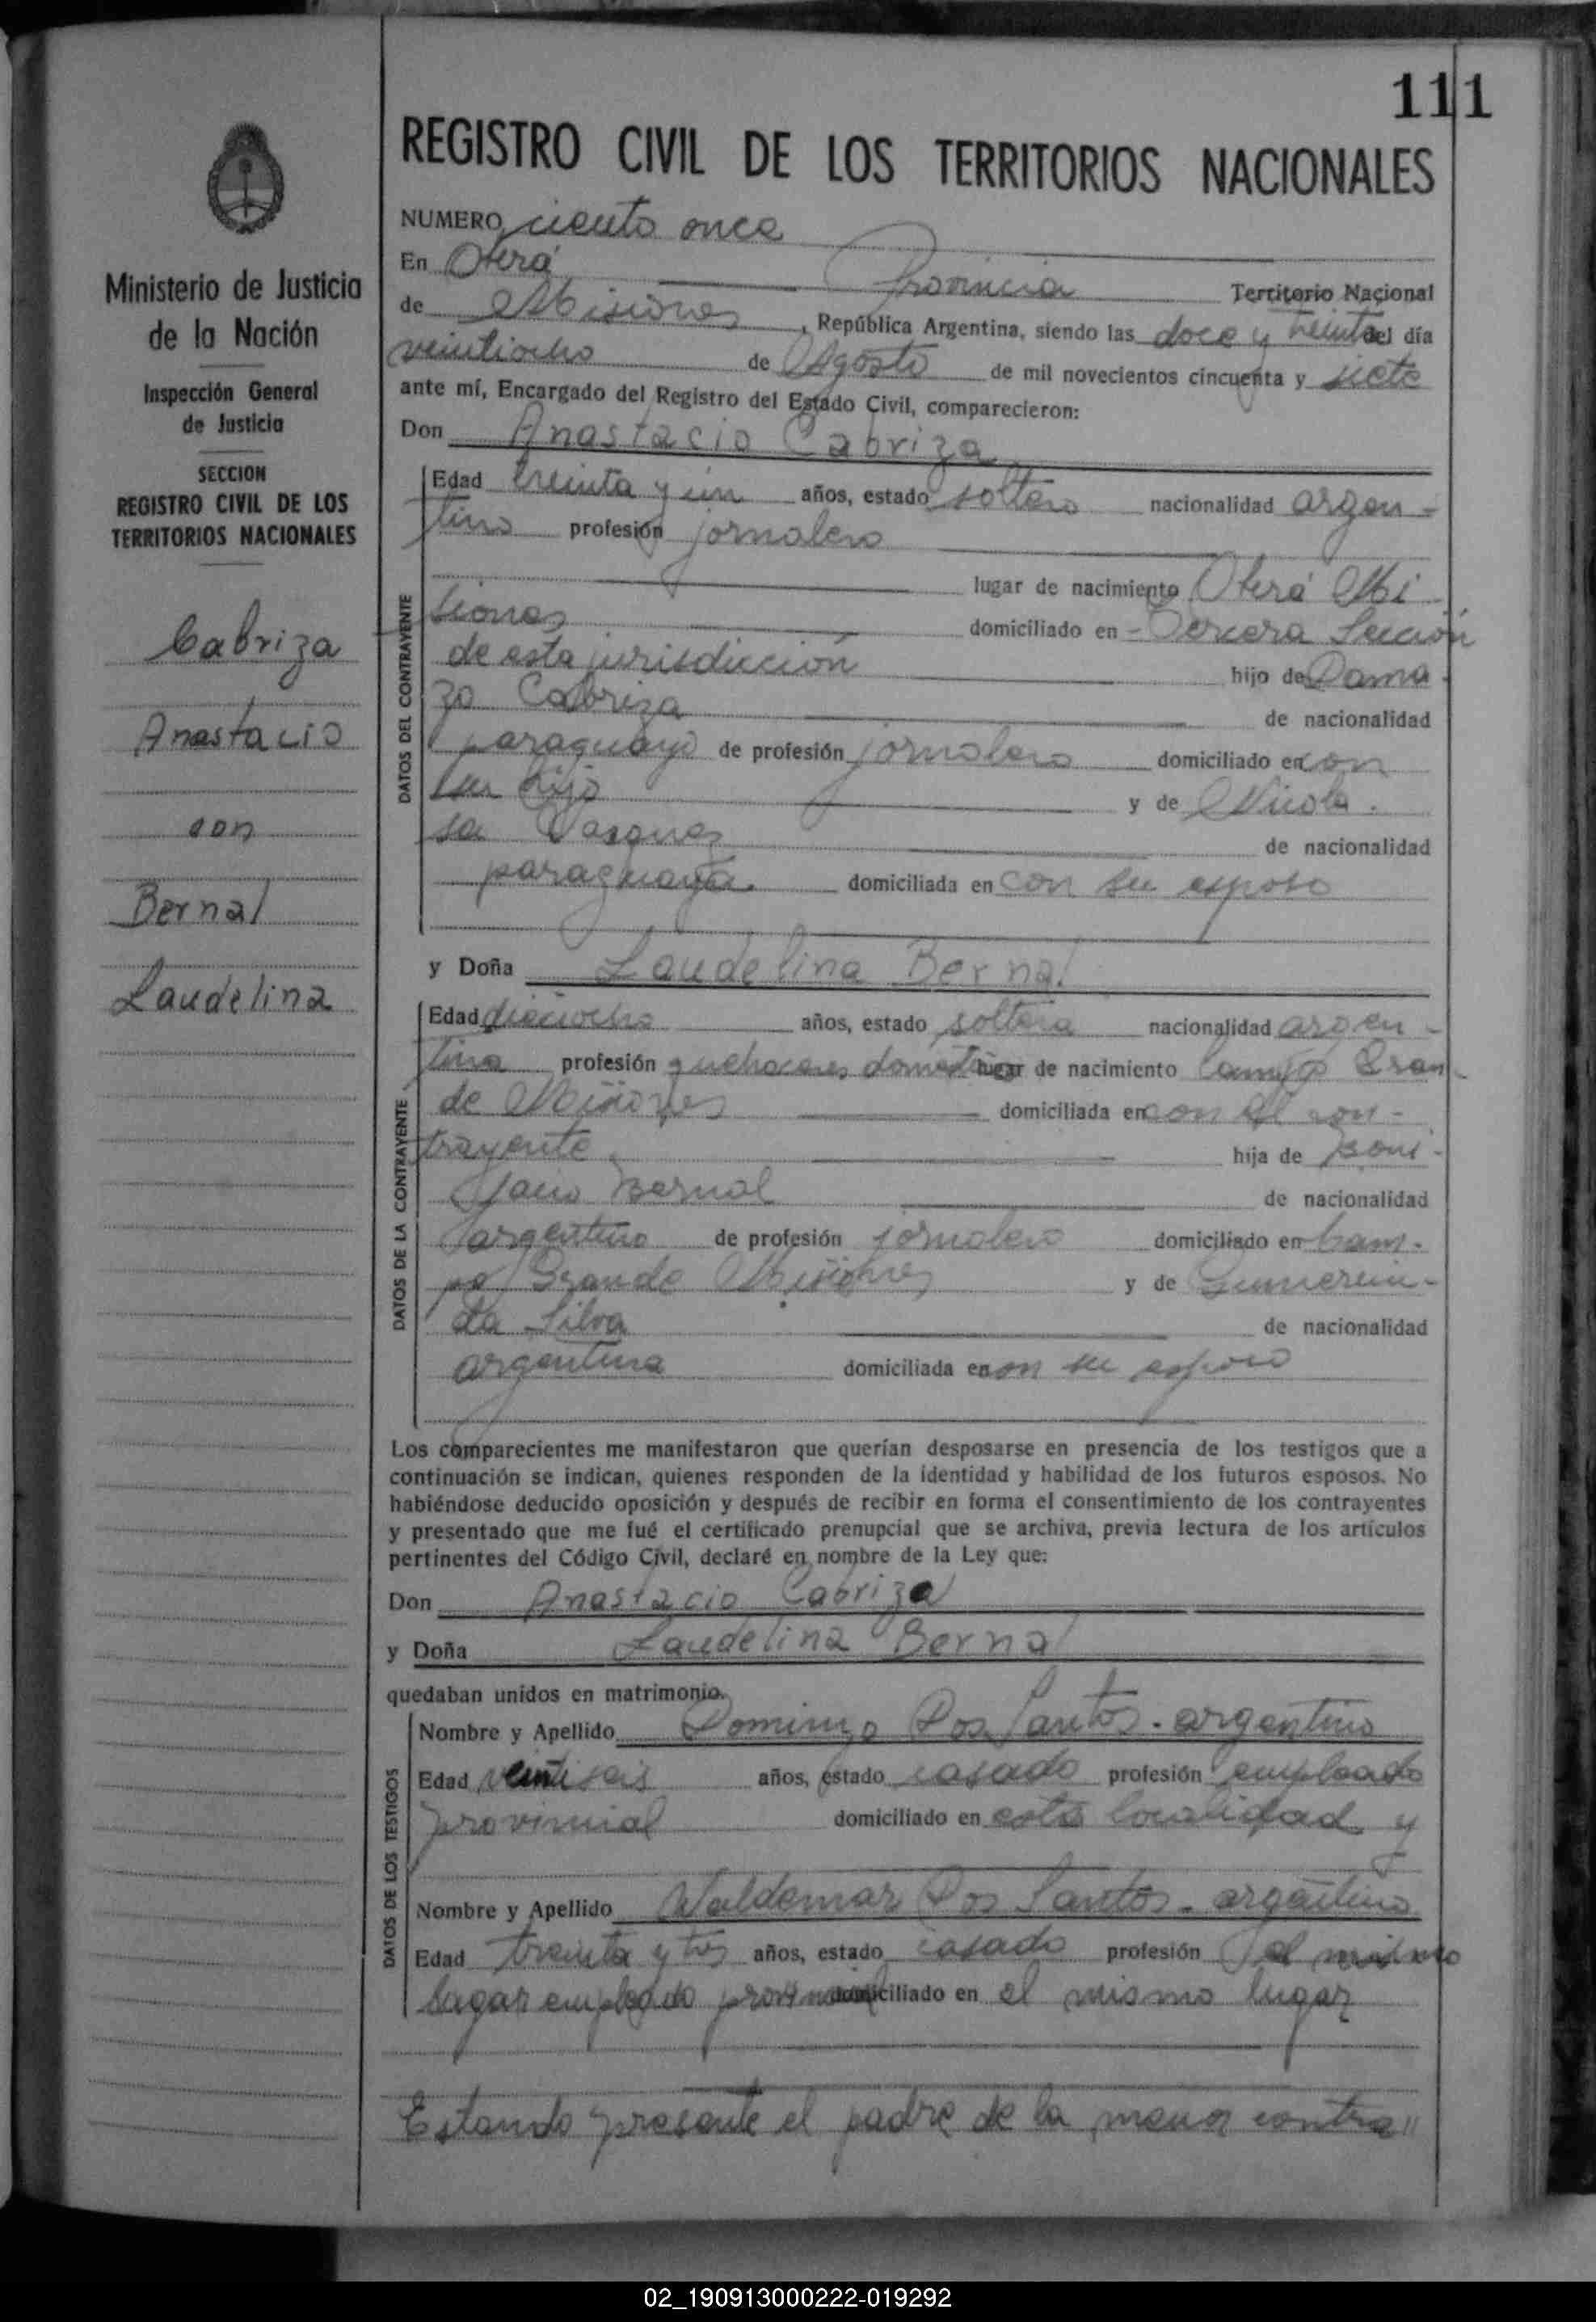 111
REGISTRO CIVIL DE LOS TERRITORIOS NACIONALES
Ministerio de Justicia
de la Nación
Inspección General
de Justicia
SECCION
REGISTRO CIVIL DE LOS
TERRITORIOS NACIONALES
Cabriza
Anastacio
con
Bernal
Laudelina
NUMERO ciento once
En Oberá Provincia Territorio Nacional
de Misiones, República Argentina, siendo las doce y treinta del día
veintiocho de Agosto de mil novecientos cincuenta y siete
ante mí, Encargado del Registro del Estado Civil, comparecieron:
Don Anastacio Cabriza
DATOS DEL CONTRAYENTE
Edad treinta y un años, estado soltero nacionalidad argen-
tino profesión jornalero
lugar de nacimiento Oberá Mi
siones domiciliado en - Tercera Sección
de esta jurisdicción hijo de Dama-
zo Cabriza de nacionalidad
paraguayo de profesión jornalero domiciliado en con
su hijo y de Nicola-
sa Vasquez de nacionalidad
paraguaya. domiciliada en con su esposo
y Doña Laudelina Bernal
DATOS DE LA CONTRAYENTE
Edad dieciocho años, estado soltera nacionalidad argen-
tina profesión quehaceres domésticos lugar de nacimiento Campo Gran-
de Misiones domiciliada en con el con-
trayente. hija de Boni-
facio Bernal de nacionalidad
argentino de profesión jornalero domiciliado en Cam-
po Grande Misiones y de Gumercin-
da Silva de nacionalidad
argentina domiciliada en con su esposo
Los comparecientes me manifestaron que querían desposarse en presencia de los testigos que a
continuación se indican, quienes responden de la identidad y habilidad de los futuros esposos. No
habiéndose deducido oposición y después de recibir en forma el consentimiento de los contrayentes
y presentado que me fué el certificado prenupcial que se archiva, previa lectura de los artículos
pertinentes del Código Civil, declaré en nombre de la Ley que:
Don Anastacio Cabriza
y Doña Laudelina Bernal
quedaban unidos en matrimonio.
DATOS DE LOS TESTIGOS
Nombre y Apellido Domingo Dos Santos - argentino
Edad veintiseis años, estado casado profesión empleado
provincial domiciliado en esta localidad y
Nombre y Apellido Waldemar Dos Santos - argentino
Edad treinta y tres años, estado casado profesión el mismo
lugar empleado provincial domiciliado en el mismo lugar
Estando presente el padre de la menor contra"
02_190913000222-019292